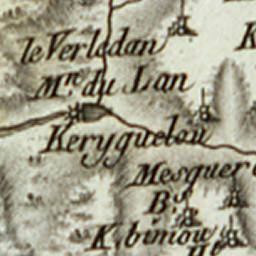 le Verledan
K
M.in du Lan
Keryguelou
Mesguer
B.s
K.biniou